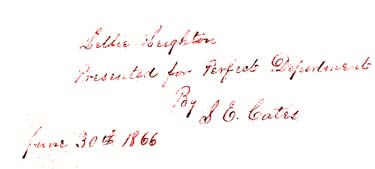 Lellie Leighton
Presented for Perfect Department
By
S E. Cates
June 30th 1866